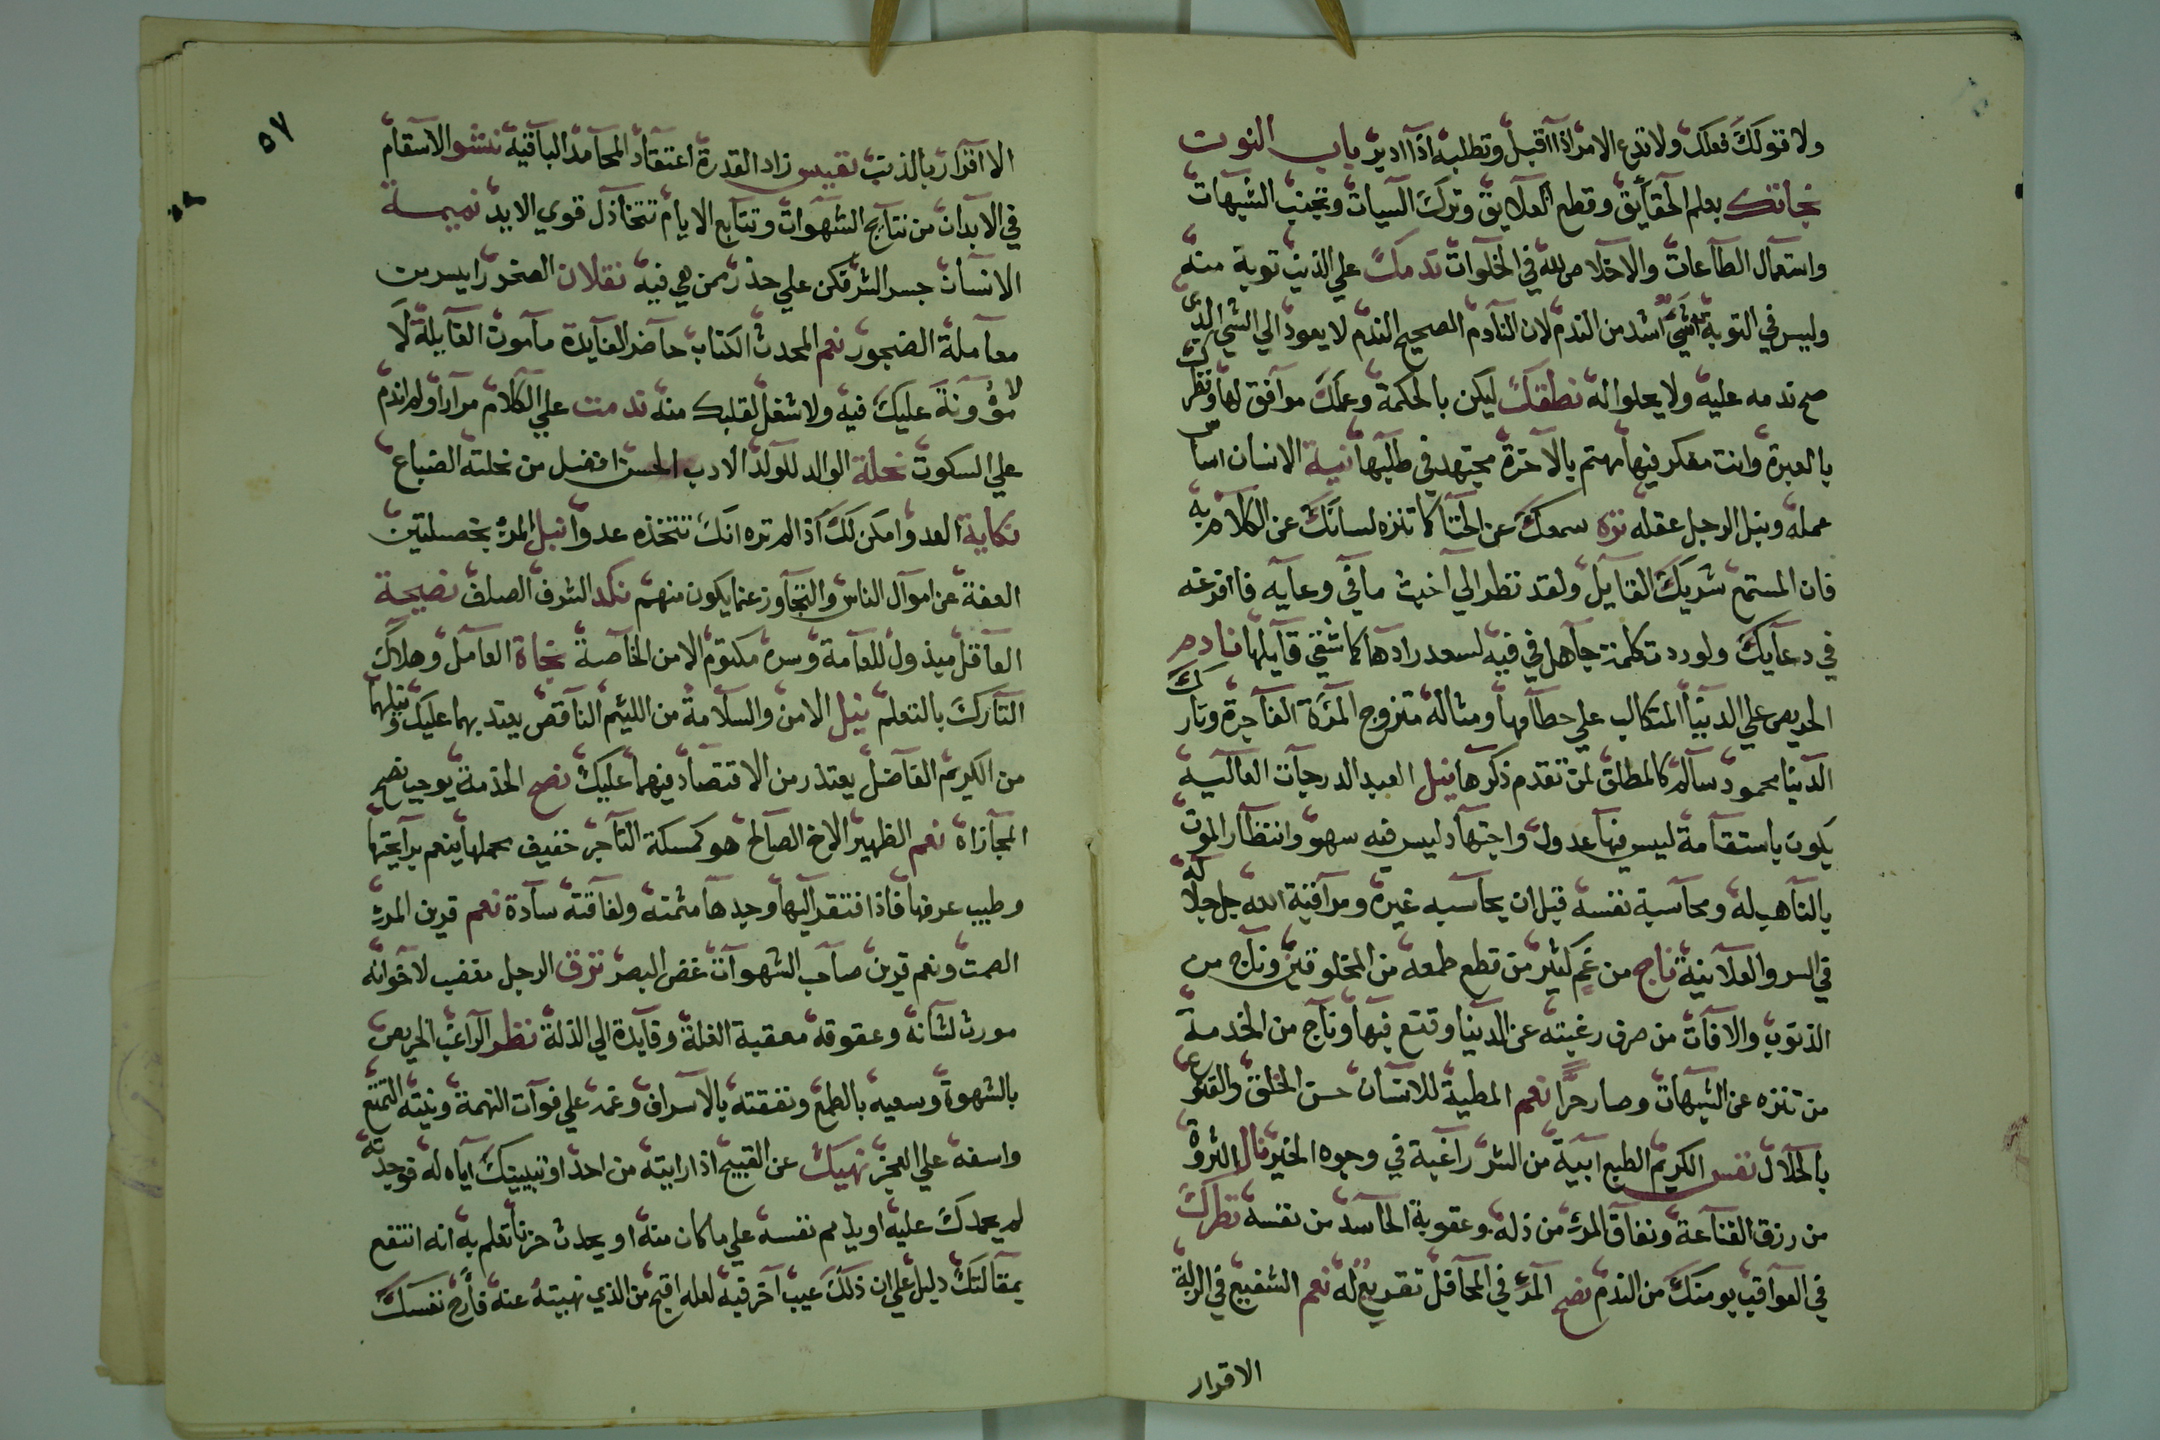 ولا قولك فعلك ولا تدع الامر اذا اقبل وتطلبه اذا ادبر باب النون
نجاتك بعلم الحقايق وقطع العلايق وترك السيات وتجنب الشبهات
واستعمال الطاعات والاخلاص لله في الخلوات ندمك علي الذنب توبة منه
وليس في التوبة شيء اشد من الندم لان النادم الصحيح الندم لا يعود الي الشي الذي
صح ندمه عليه ولا يحلوا له نطقك ليكن بالحكمة وعملك موافق لها ونظرك
بالعبرة وانت مفكر فيها مهتم بالاخرة مجتهد في طلبها نية الانسان اساس
عمله ونبل الرجل عقله نزه سمعك عن الخنا كما تنزه لسانك عن الكلام به
فان المستمع شريك القايل ولقد نظر الي اخبث ما في وعايه فافرغه
في دعايك ولو ردت كلمة جاهل في فيه لسعد رادها كما شقي قايلها نادم
الحريص علي الدنيا المتكالب علي حطامها ومثاله متزوج المرة الفاجرة وتارك
الدنيا محمود سالم كالمطلق لمن تقدم ذكرها نيل العبد الدرجات العالية
يكون باستقامة ليس فيها عدول واجتهاد ليس فيه سهو وانتظار الموت
بالتاهب له ومحاسبة نفسه قبل ان يحاسبه غيره ومراقبة الله جل جلاله
في السر والعلانية ناج من غم كثير من قطع طمعه من المخلوقين وناج من
الذنوب والافات من صرف رغبته عن الدنيا وقنع فيها وناج من الخدمة
من تنزه عن الشبهات وصار حرا نعم المطية للانسان حسن الخلق والقنوع
بالحلال نفس الكريم الطبع ابية من الشر راغبة في وجوه الخير نال الثروة
من رزق القناعة ونفاق المرء من ذله وعقوبة الحاسد من نفسه نظرك
في العواقب يومنك من الندم نصح المرء في المحافل تقريع له نعم الشفيع في الزلة
الاقرار
٥٧
الا اقرار بالذنب نفيس زاد القدرة اعتقاد المحامد الباقية نشو الاسقام
في الابدان من نتايج الشهوات وتتابع الايام تتخاذل قوي الابد نميمة
الانسان جسر الشر فكن علي حذر ممن هي فيه نقلان الصخر ايسر من
معاملة الضجور نعم المحدث الكتاب حاضر الفايدة مامون القايلة لا
لا مؤونة عليك فيه ولا شغل لقلبك منه ندمت علي الكلام مرارا ولم اندم
علي السكوت نحلة الوالد للولد الادب الحسن افضل من نحلته الضياع
نكاية العدو امكن لك اذا لم تره انك تتخذه عدوا نبل المرء بخصلتين
العفة عن اموال الناس والتجاوز عما يكون منهم نكد الشرف الصلف نصيحة
العاقل مبذول للعامة وسره مكتوم الا من الخاصة نجاة العامل وهلاك
التارك بالتعلم نيل الامن والسلامة من اللئيم الناقص يعتد بهما عليك ونيلهما
من الكريم الفاضل يعتذر من الاقتصاد فيهما عليك نصح الخدمة يوجب نصح
المجازاة نعم الظهير الاخ الصالح هو كمسكة التاجر خفيف حملها ينعم برايحتها
وطيب عرفها فاذا افتقر اليها وجدها مثمنه ولفاقته سادة نعم قرين المرء
الصمت ونعم قرين صاحب الشهوات غض البصر نزق الرجل مغضب لاخوانه
مورث لشانه وعقوقه معقبة القلة وقايدة الي الذلة نظر الراغب الحريص
بالشهوة وسعيه بالطمع ونفقته بالاسراف وغمه علي فوات النهمة ونيته التمتع
واسفه علي العجز نهيك عن القبيح اذا رايته من احد او تبييتك اياه له فوجدته
لم يحمدك عليه او يذم نفسه علي ما كان منه او يحدث حزنا تعلم به انه انتفع
بمقالتك دليل علي ان ذلك عيب اخر فيه لعله اقبح من الذي نهيته عنه فارح نفسك